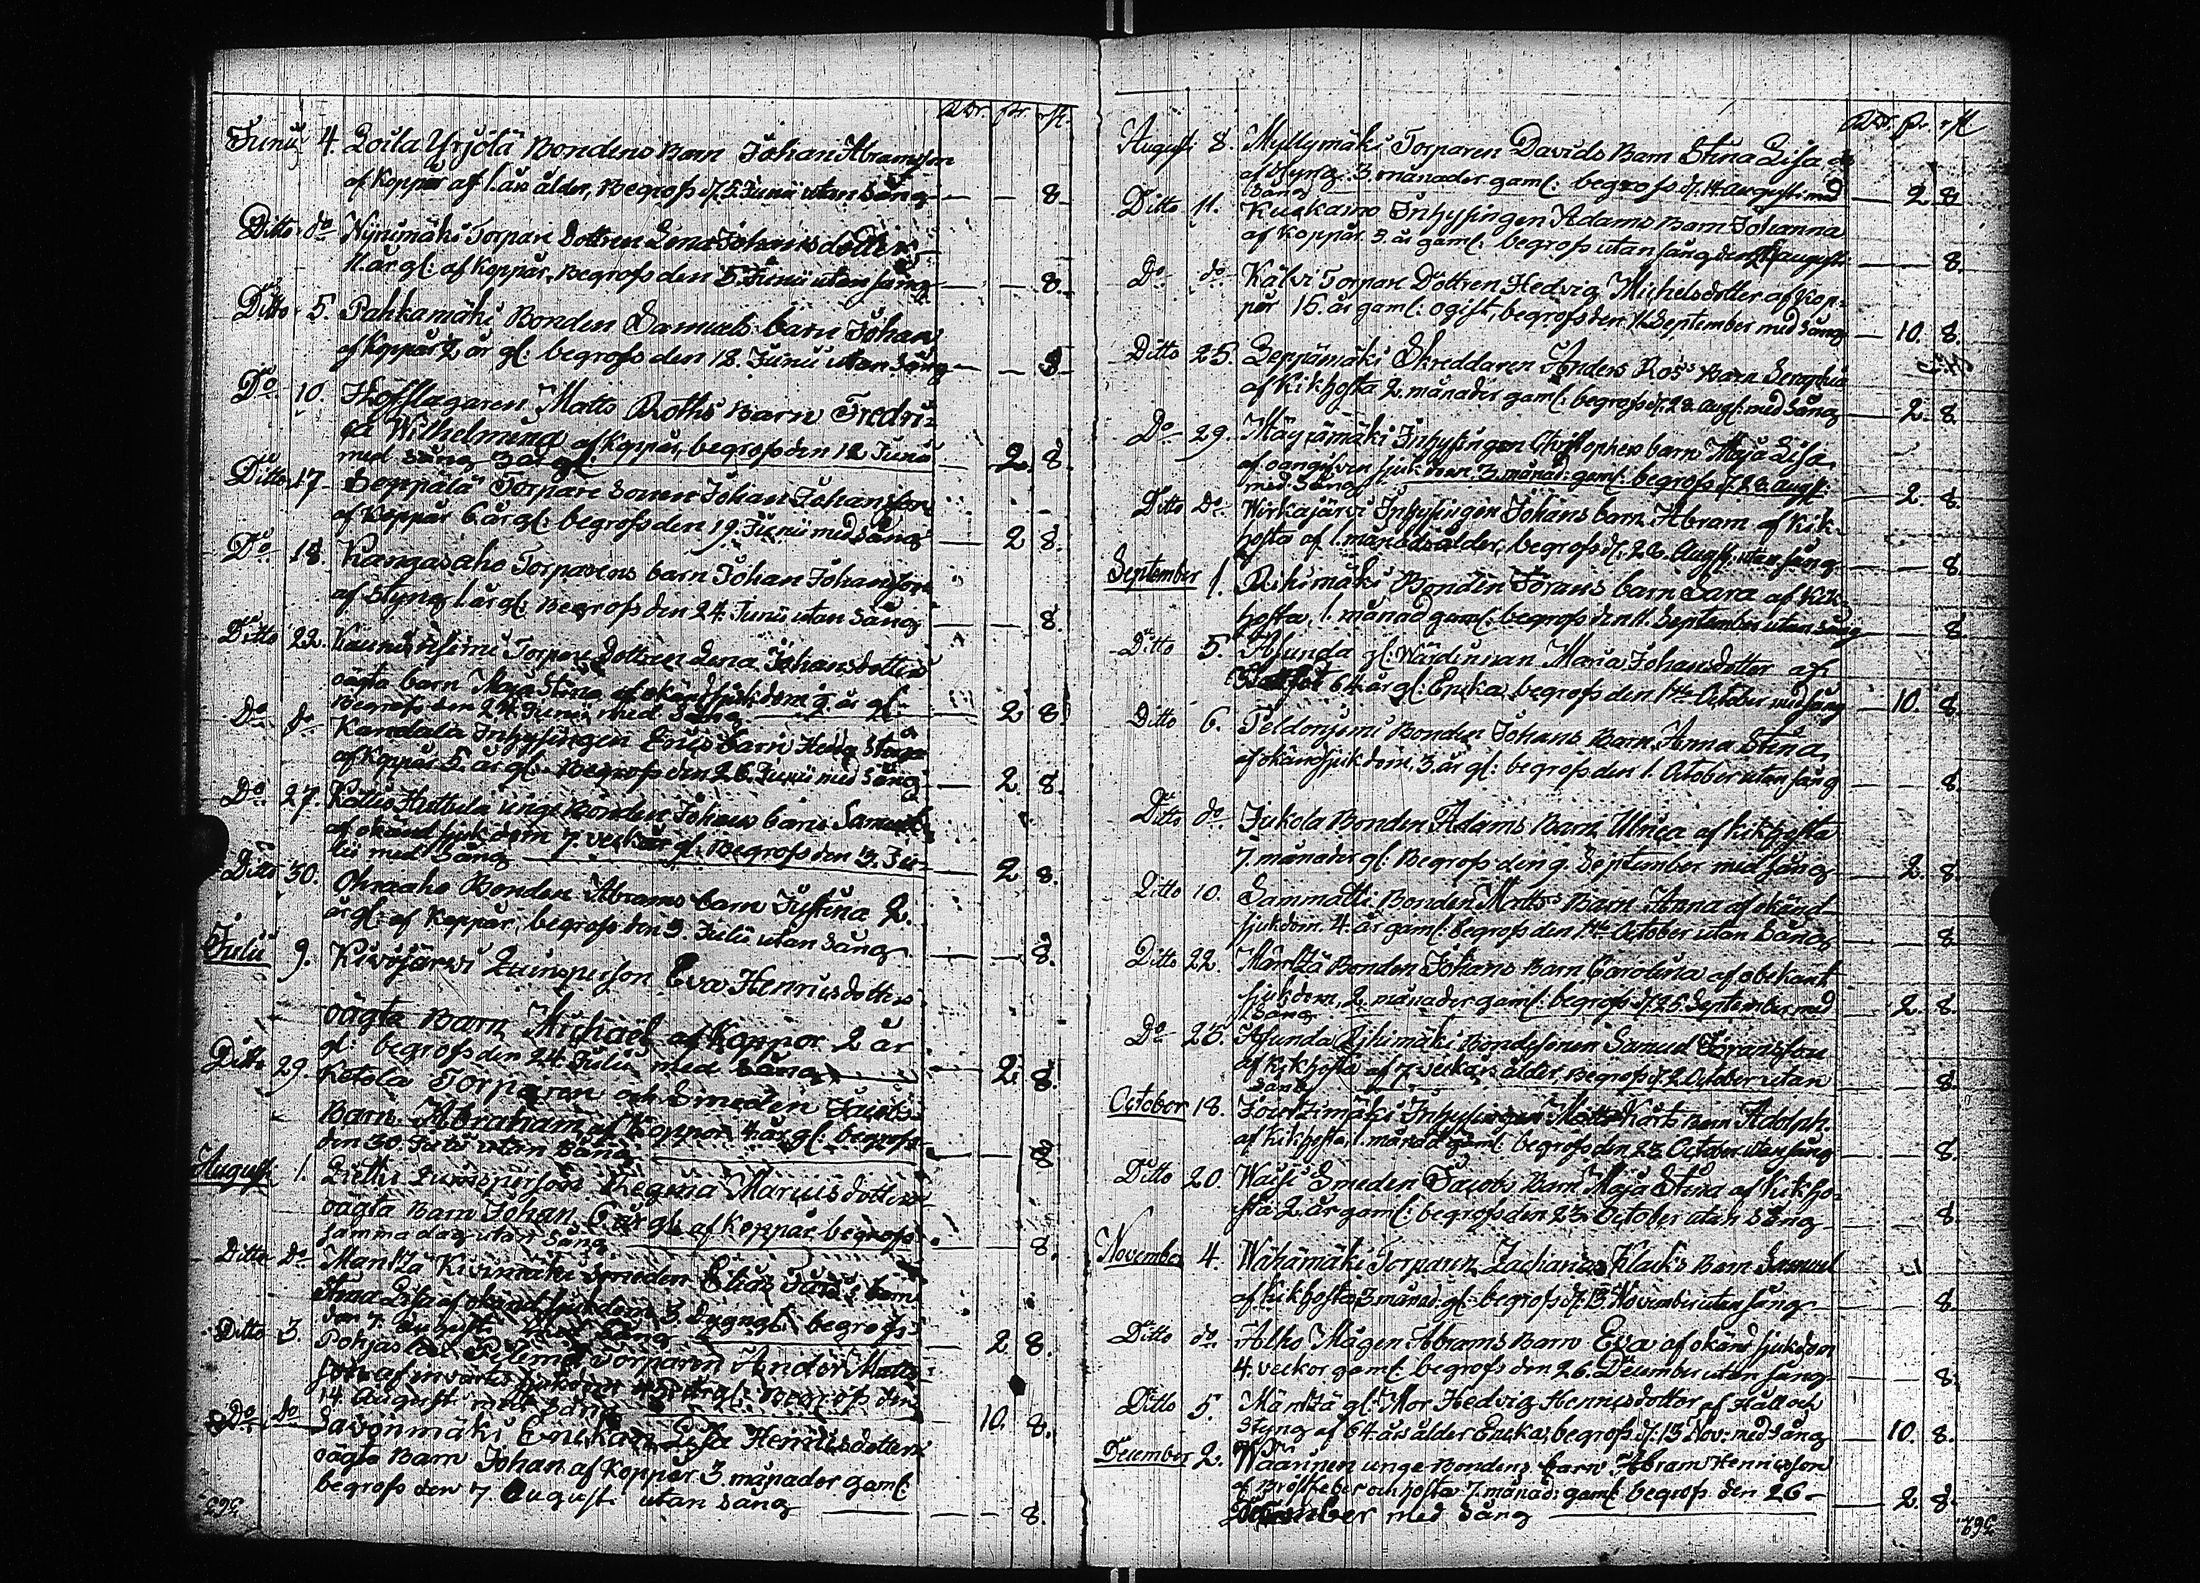 Rdr. pr. rst.
Junii 4. Zoila Yrjölä Bondens Barn Johan Abramsson
af Koppår af 1. års ålder, Begrofs d. 5. Junii utan Sång — — 8.
Ditto do Nyrimäki Torpare Dottren Lena Johansdotter
11. år gl: af Koppår, Begrofs den 5 Junii utan sång — — 8.
Ditto 5. Pahkamäki Bonden Samuels barn Johan
af Koppår 2 år gl: begrofs den 18. Junii utan Sång — — 8
Do 10. Hofslagaren Matts Roths Barn Fredri-
ca Wilhelmina af Koppår, begrofs den 12 Junii
med Sång 3 år gl. — 2. 8.
Ditto 17. Seppälä Torpare Sonen Johan Johansson
af Koppår 6 år gl: begrofs den 19. Junii med Sång — 2 8.
Do 18. Kangasaho Torparens barn Johan Johansson
af Styng 1. år gl: Begrofs den 24. Junii utan Sång — — 8.
Ditto 22. Torpare Dottren Lena Johansdotters
oägta barn Maja Stina af okänd sjukdom år gl:
Begrofs den 24. Junii med Sång — 2 8.
Do do Kandala Inhysingen barn
af Koppår 5. år gl: Begrofs den 26. Junii med Sång — 2 8.
Do 27. unge Bonden Johans barn Samuel
af okänd sjukdom 7. gl: Begrofs den 3. Ju-
lii med Sång — 2 8.
Ditto 30. Ohraaho Bonden Abrams barn Justina 2.
år gl: af Koppår, begrofs den 3. Julii utan Sång — — 8.
Julii 9. Kivijärvi Qvinsperson Eva Henricsdotters
oägta Barn Michael af Koppor 2 år
gl: begrofs den 24. Julii med Sång — 2. 8.
Ditto 29. Ketola Torparen och Smeden Jacobs
Barn Abraham af Koppor 4. år gl: begrofs
den 30. Julii utan Sång — — 8
August 1. Qvinsperson Regina Mariisdotters
oägta Barn Johan 6 år gl: af Koppår begrofs
samma dag utan Sång — — 8.
Ditto do Mäntzä Kivimäki Smeden Elias barn
Anna Lisa af okänd sjukdom 3. dagar gl: begrofs
den 7. Augusti med Sång — 2 8.
Ditto 3. Pohjas Torparen Anders Matts-
son af invärtes sjukdom år gl: Begrofs den
14. August med Sång — 10. 8.
Do do Savonmäki Enkan Lisa Henricsdotters
oägta Barn Johan af Koppår 3. månader gaml:
begrofs den 7 August. utan sång — — 8.
363.
Rdr. pr. rst
August 8. Myllymäki Torparen Davids Barn Stina Lisa
af Styng 3. månader gaml: begrofs d. 14. august: med
Sång — 2 8
Ditto 11. Kuckamo Inhysingen Adams Barn Johanna
af Koppår 3. år gaml: begrofs utan sång den augusti — — 8.
Do do Kälvi Torpare Dottren Hedvig Michelsdotter af Kop-
pår 15. år gaml: ogift, begrofs den 11. September med Sång — 10. 8.
Ditto 25. Leppämäki Skreddaren Anders Ros's Barn Seraphia
af Kikhosta 2. månader gaml: begrofs d. 28. Aug: med Sång — 2. 8.
Do 29. Mäyrämäki Inhysingen Christophers barn Maja Lisa
af oangifven sjukdom, 3. månad: gaml: begrofs d. 28. Aug:
med Sång — 2. 8.
Ditto Do Wirkajärvi Inhysingen Johans barn Abram af Kik-
hosta af 1. månads ålder, begrofs d. 26. Aug: utan Sång — — 8.
September 1. Rihimäki Bonden Görans barn Sara af Kik-
hosta, 1. månad gaml: begrofs den 11. September utan Sång — 8.
Ditto 5. Asunda gl: Wärdinnan Maria Johansdotter af
64 år gl: Enka, begrofs den 1ste October med sång — 10. 8.
Ditto 6. Peldoniemi Bonden Johans Barn Anna Stina
af okänd sjukdom, 3. år gl: begrofs den 1. October utan sång — 8.
Ditto do Jukola Bonden Adams Barn Ulrica af kikhosta
7. månader gl: Begrofs den 9. September med sång — 2. 8.
Ditto 10. Sammatti Bonden Matts Barn Anna af okänd
sjukdom 4. år gaml: begrofs den 1ste October utan Sång — 8.
Ditto 22. Mäntzä Bonden Johans Barn Carolina af obekant
sjukdom, 2. månader gaml: begrofs d. 25. September med
Sång — 2. 8.
Do 25. Asunda Rihimäki Bondesonen Samuel Göransson
af Kikhosta af 7. veckars ålder, Begrofs d. 2. October utan
Sång — 8.
October 18. Inhysingen Matts barn Adolph
af kikhosta, 1. månad gaml: begrofs den 23. October utan sång — 8.
Ditto 20. Smeden Jacobs Barn Maja Stina af kikho-
sta 2. år gaml: begrofs den 23. October utan Sång — 8.
November 4. Wihämäki Torparen Zacharias Barn Samuel
af kikhosta, 3 månad: gl: begrofs d. 13. November utan sång — 8.
Ditto do Alho Mågen Abrams Barn Eva af okänd sjukdom
4. veckor gaml: begrofs den 26. December utan sång — 8.
Ditto 5. Mäntzä gl: Mor Hedvig Henricsdotter af Håll och
styng af 64. års ålder Enka, begrofs d. 13 Nov: med Sång — 10. 8.
December 2. Waarinen unge Bondens barn Abram Henricsson
af Bröstfeber och hosta 7. månad: gaml: begrofs den 26
December med Sång — 2. 8.
362.